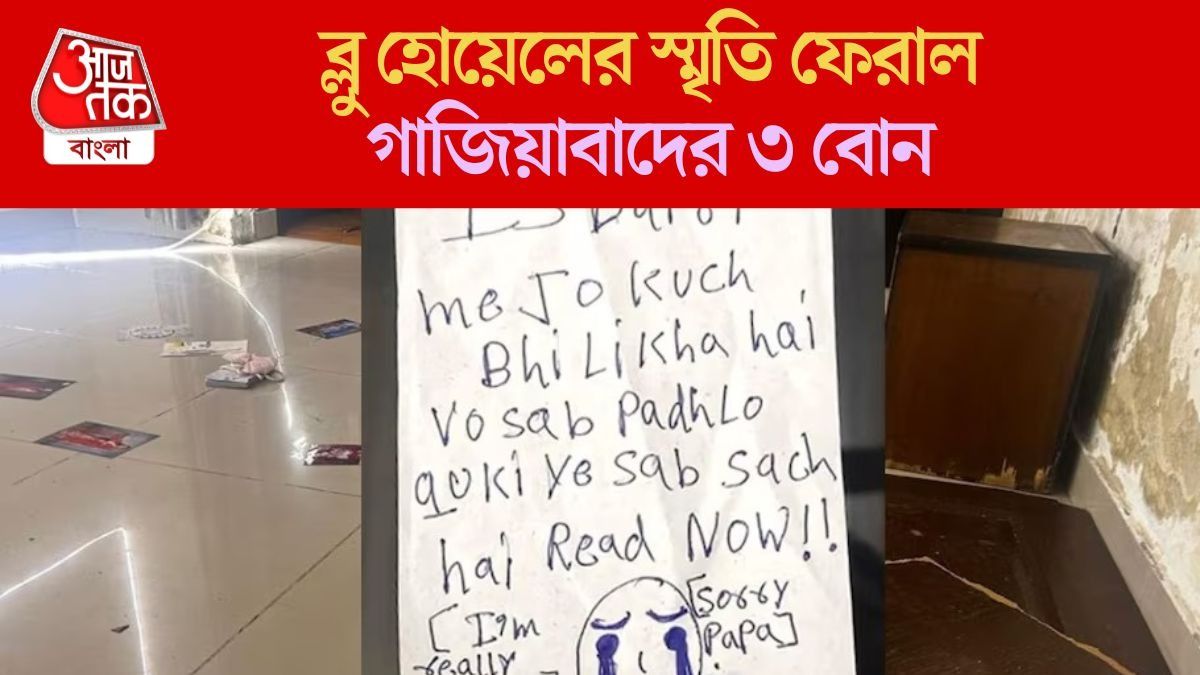 আজ
তক
বাংলা
ব্লু হোয়েলের স্মৃতি ফেরাল
গাজিয়াবাদের ৩ বোন
me Jo kuch
Bhi Likha hai
vo sab Padh Lo
quki ye sab sach
hai Read NOW!!
[I'm
really
[Sorry
PaPa]